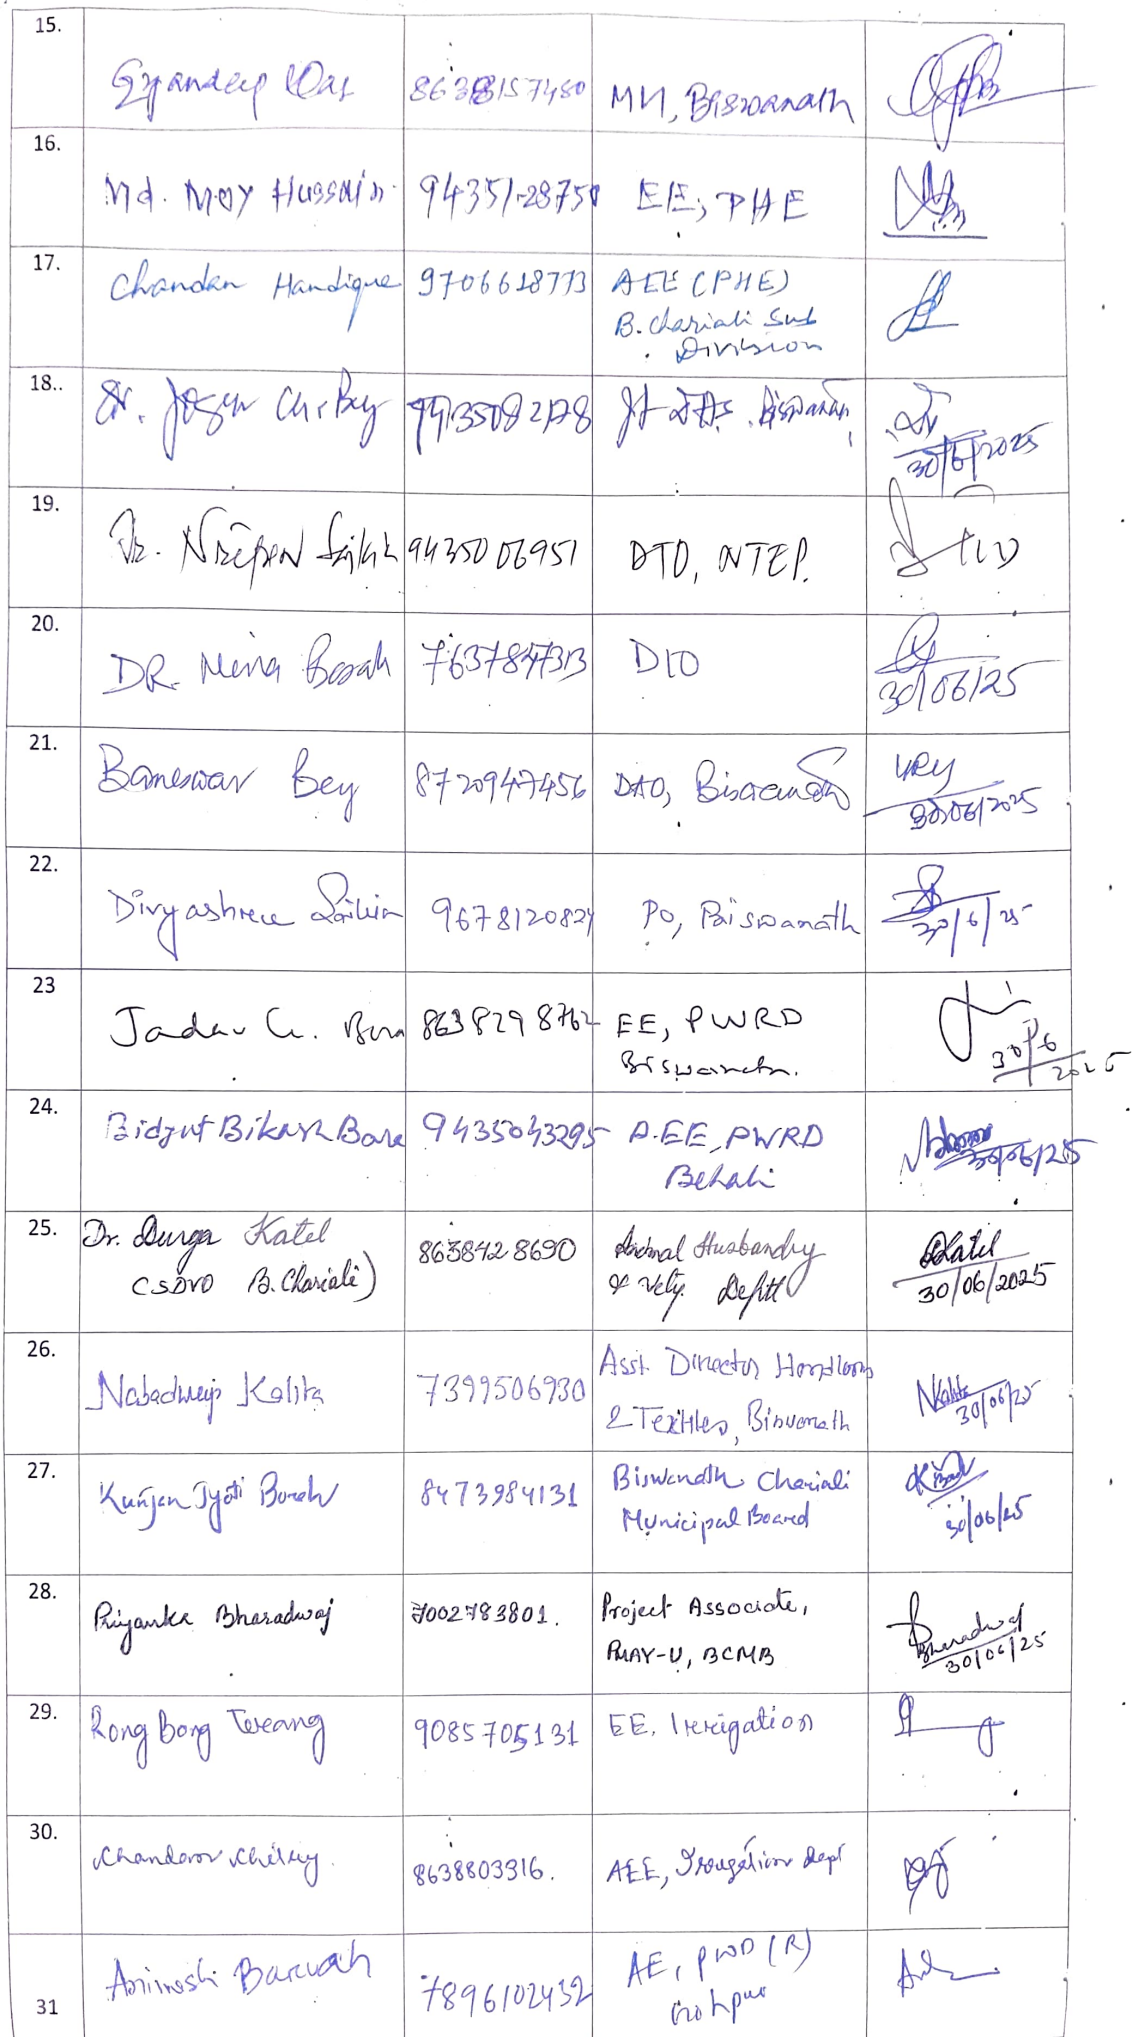 15.
Gyandeep Das 8638157480 MVI, Biswanath
16.
Md. Moy Hussain 94351-28750 EE, PHE
17.
Chandan Handique 9706618773 AEE (PHE)
B. Chariali Sub
Division
18..
Dr. Jogen Ch. Bey 9435082178 Jt Biswanath
30/6/2025
19.
Dr. Nripen Saikia 9435006951 DTO, NTEP.
20.
DR. Mina Borah 7637847313 DIO
30/06/25
21.
Baneswar Bey 8720947456 DAO, Biswanath
30/06/2025
22.
Divyashree Saikia 9678120824 PO, Biswanath
30/6/25
23
Jadav Ch. Bora 8638298762 EE, PWRD
Biswanath.
30/6
2025
24.
Bidyut Bikash Bora 9435043295 A.EE, PWRD
Behali
30/06/25
25.
Dr. Durga Katel 8638428690 Animal Husbandry
CSDVO B. Chariali) & Vety. Deptt
DKatel
30/06/2025
26.
Nabadweep Kalita 7399506930 Asst. Director Handloom
& Textiles, Biswanath
NKalita
30/06/25
27.
Kunjan Jyoti Borah 8473984131 Biswanath Chariali
Municipal Board
30/06/25
28.
Priyanka Bharadwaj 7002783801. Project Associate,
PMAY-U, BCMB
Bharadwaj
30/06/25
29.
Rong Bong Terang 9085705131 EE, Irrigation
30.
8638803316. AEE, Irrigation dept
31
Animesh Baruah 7896102432 AE, PWD (R)
Gohpur